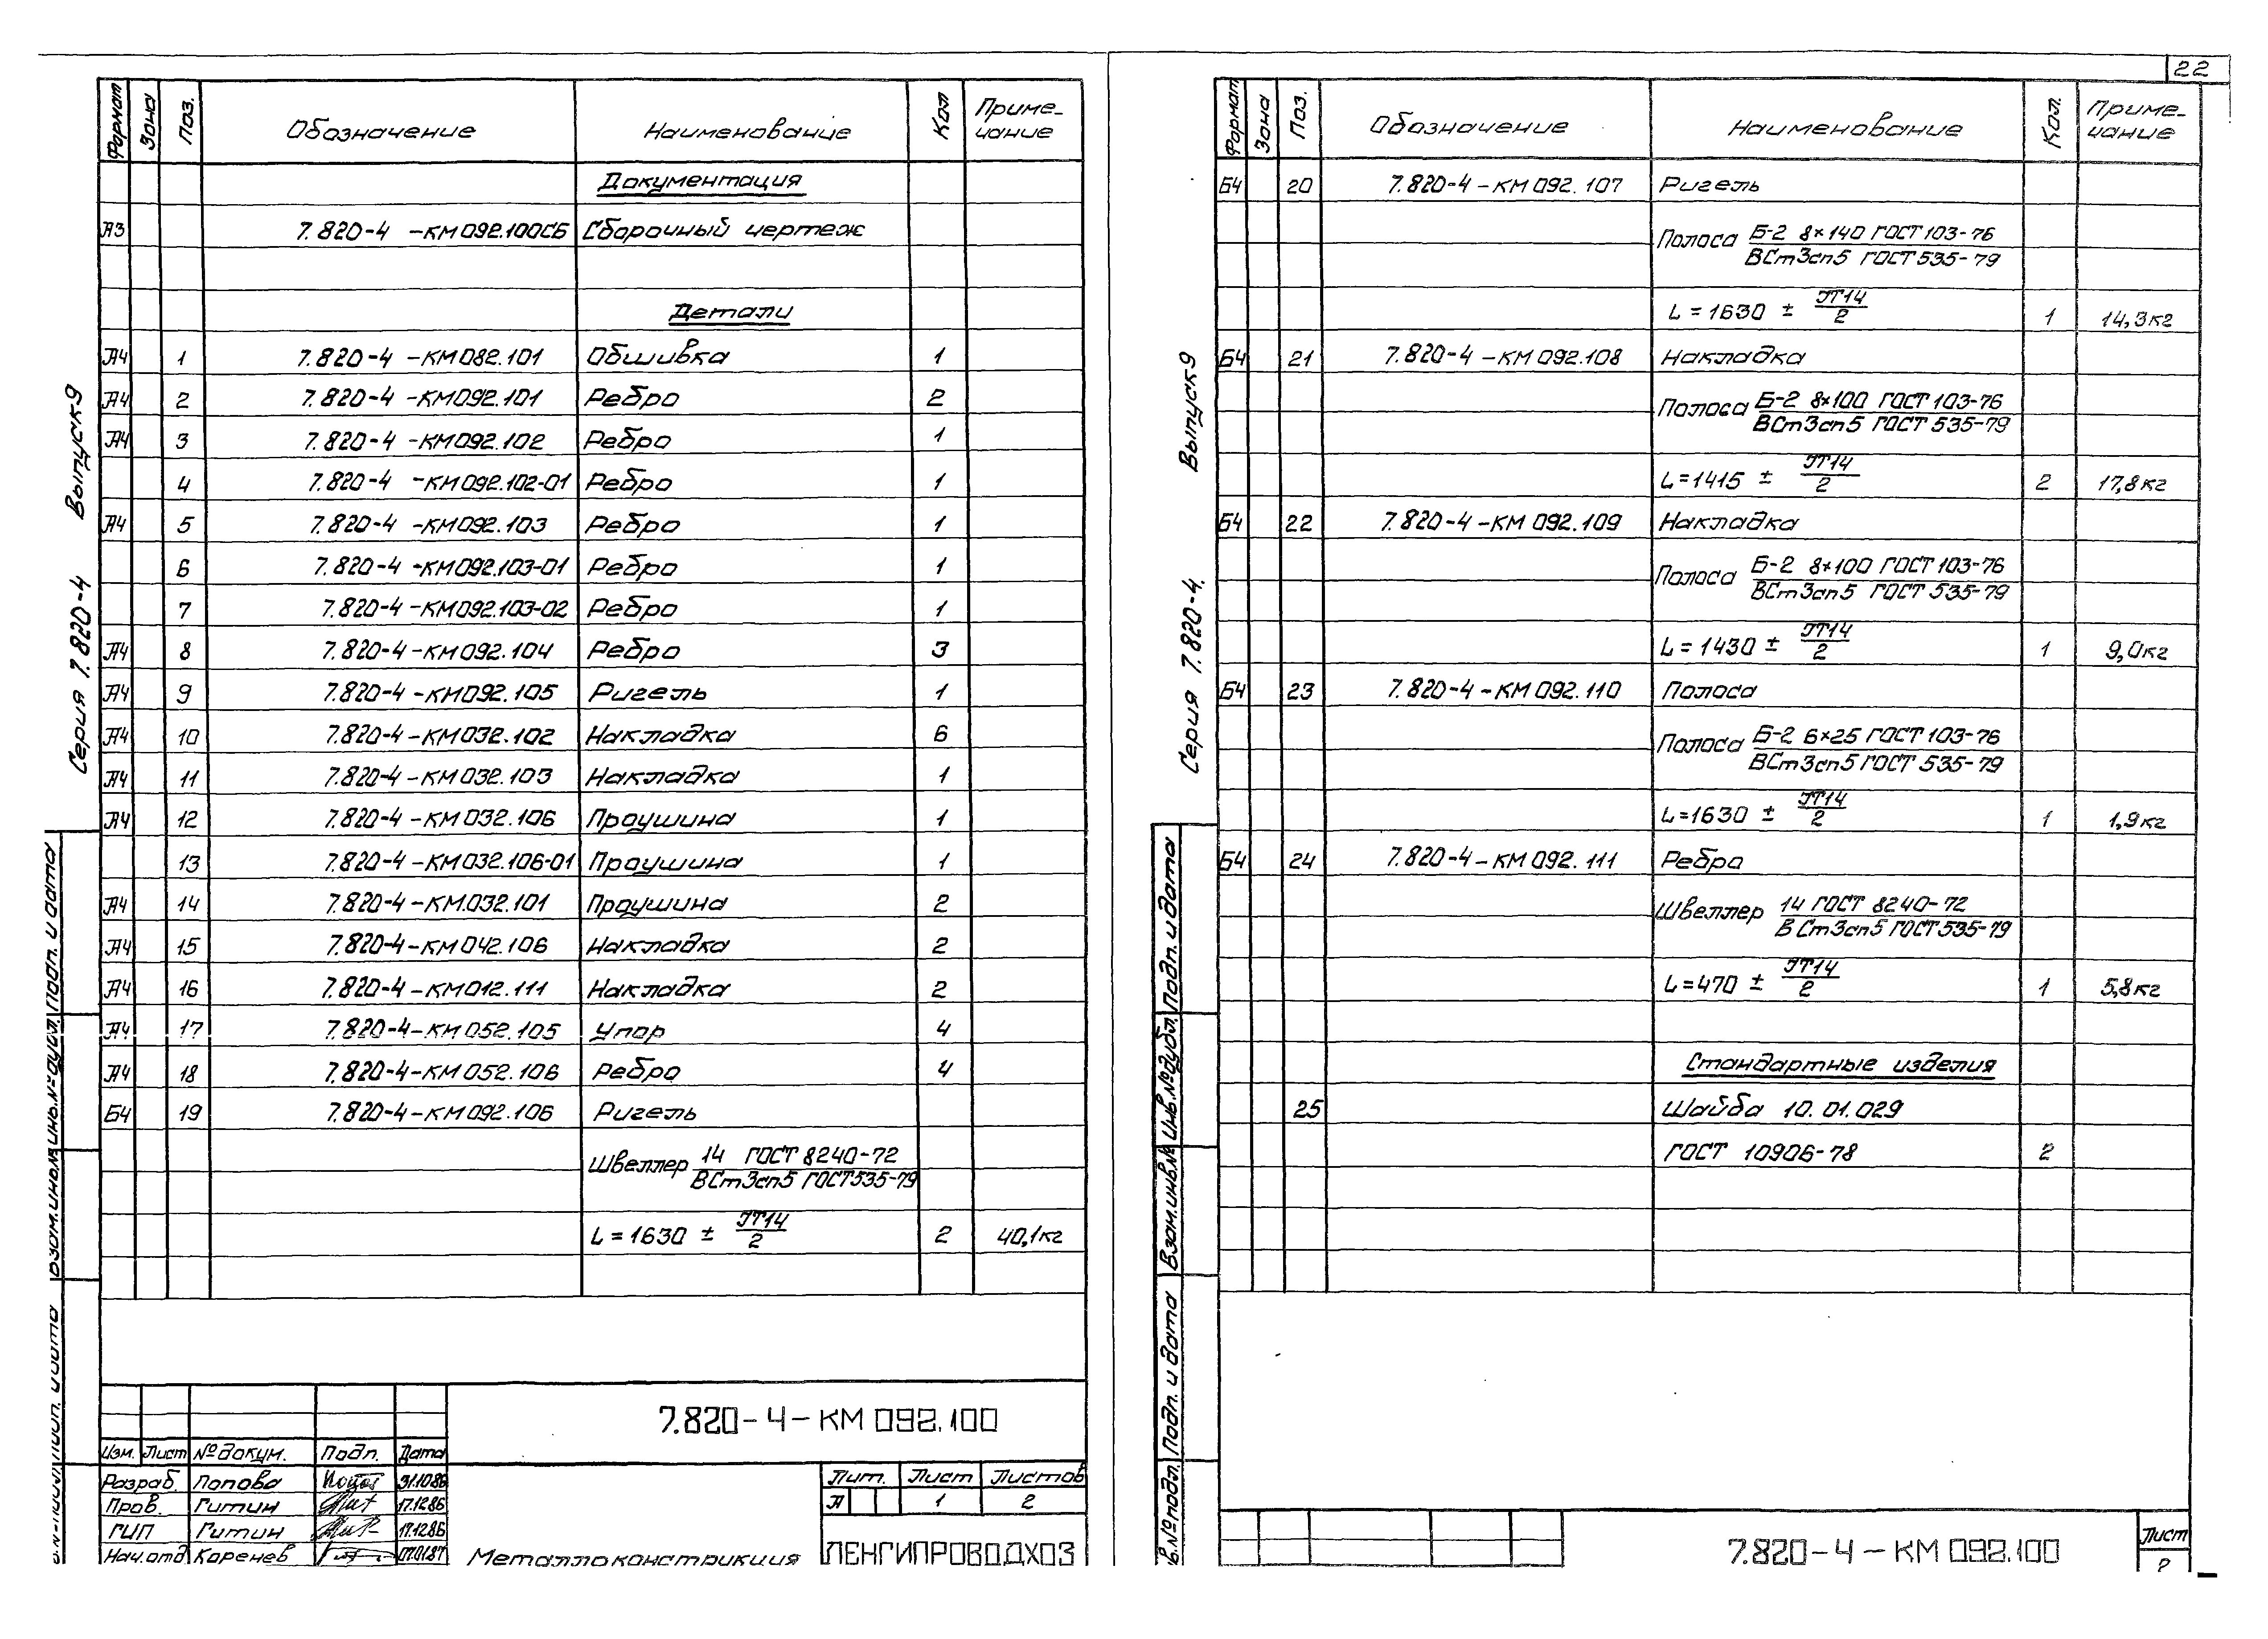 22
Серия 7.820-4 Выпуск 9
Формат Зона Поз. Обозначение Наименование Кол Приме-
чание
Документация
А3 7.820-4 -КМ092.100СБ Сборочный чертеж
Детали
А4 1 7.820-4 -КМ082.101 Обшивка 1
А4 2 7.820-4 -КМ092.101 Ребро 2
А4 3 7.820-4 -КМ092.102 Ребро 1
4 7.820-4 -КМ092.102-01 Ребро 1
А4 5 7.820-4 -КМ092.103 Ребро 1
6 7.820-4 -КМ092.103-01 Ребро 1
7 7.820-4 -КМ092.103-02 Ребро 1
А4 8 7.820-4 -КМ092.104 Ребро 3
А4 9 7.820-4 -КМ092.105 Ригель 1
А4 10 7.820-4 -КМ032.102 Накладка 6
А4 11 7.820-4 -КМ032.103 Накладка 1
А4 12 7.820-4 -КМ032.106 Проушина 1
13 7.820-4 -КМ032.106-01 Проушина 1
А4 14 7.820-4 -КМ.032.101 Проушина 2
А4 15 7.820-4 -КМ042.106 Накладка 2
А4 16 7.820-4 -КМ012.111 Накладка 2
А4 17 7.820-4 -КМ052.105 Упор 4
А4 18 7.820-4 -КМ052.106 Ребро 4
Б4 19 7.820-4 -КМ092.106 Ригель
Швеллер 14 ГОСТ 8240-72
ВСт3сп5 ГОСТ535-79
L = 1630 ± JT14/2 2 40,1кг
Подп. и дата
Инв.№ дубл.
Взам.инв.№
Подп. и дата
7.820-4-КМ092.100
Изм. Лист № докум. Подп. Дата
Разраб. Попова 31.10.86
Пров. Гитин 17.12.86
ГИП Гитин 17.12.86
Нач.отд Коренев 07.01.87
Металлоконструкция
Лит. Лист Листов
А 1 2
ЛЕНГИПРОВОДХОЗ
Серия 7.820-4. Выпуск 9
Формат Зона Поз. Обозначение Наименование Кол. Приме-
чание
Б4 20 7.820-4 -КМ092.107 Ригель
Полоса Б-2 8×140 ГОСТ 103-76
ВСт3сп5 ГОСТ535-79
L = 1630 ± JT14/2 1 14,3кг
Б4 21 7.820-4 -КМ092.108 Накладка
Полоса Б-2 8×100 ГОСТ 103-76
ВСт3сп5 ГОСТ 535-79
L = 1415 ± JT14/2 2 17,8кг
Б4 22 7.820-4-КМ 092.109 Накладка
Полоса Б-2 8×100 ГОСТ 103-76
ВСт3сп5 ГОСТ 535-79
L = 1430 ± JT14/2 1 9,0кг
Б4 23 7.820-4-КМ 092.110 Полоса
Полоса Б-2 6×25 ГОСТ 103-76
ВСт3сп5 ГОСТ 535-79
L = 1630 ± JT14/2 1 1,9кг
Б4 24 7.820-4-КМ 092.111 Ребро
Швеллер 14 ГОСТ 8240-72
ВСт3сп5 ГОСТ535-79
L = 470 ± JT14/2 1 5,8кг
Стандартные изделия
25 Шайба 10.01.029
ГОСТ 10906-78 2
Подп. и дата
Инв.№ дубл.
Взам.инв.№
Подп. и дата
№ подл.
7.820-4-КМ092.100
Лист
2